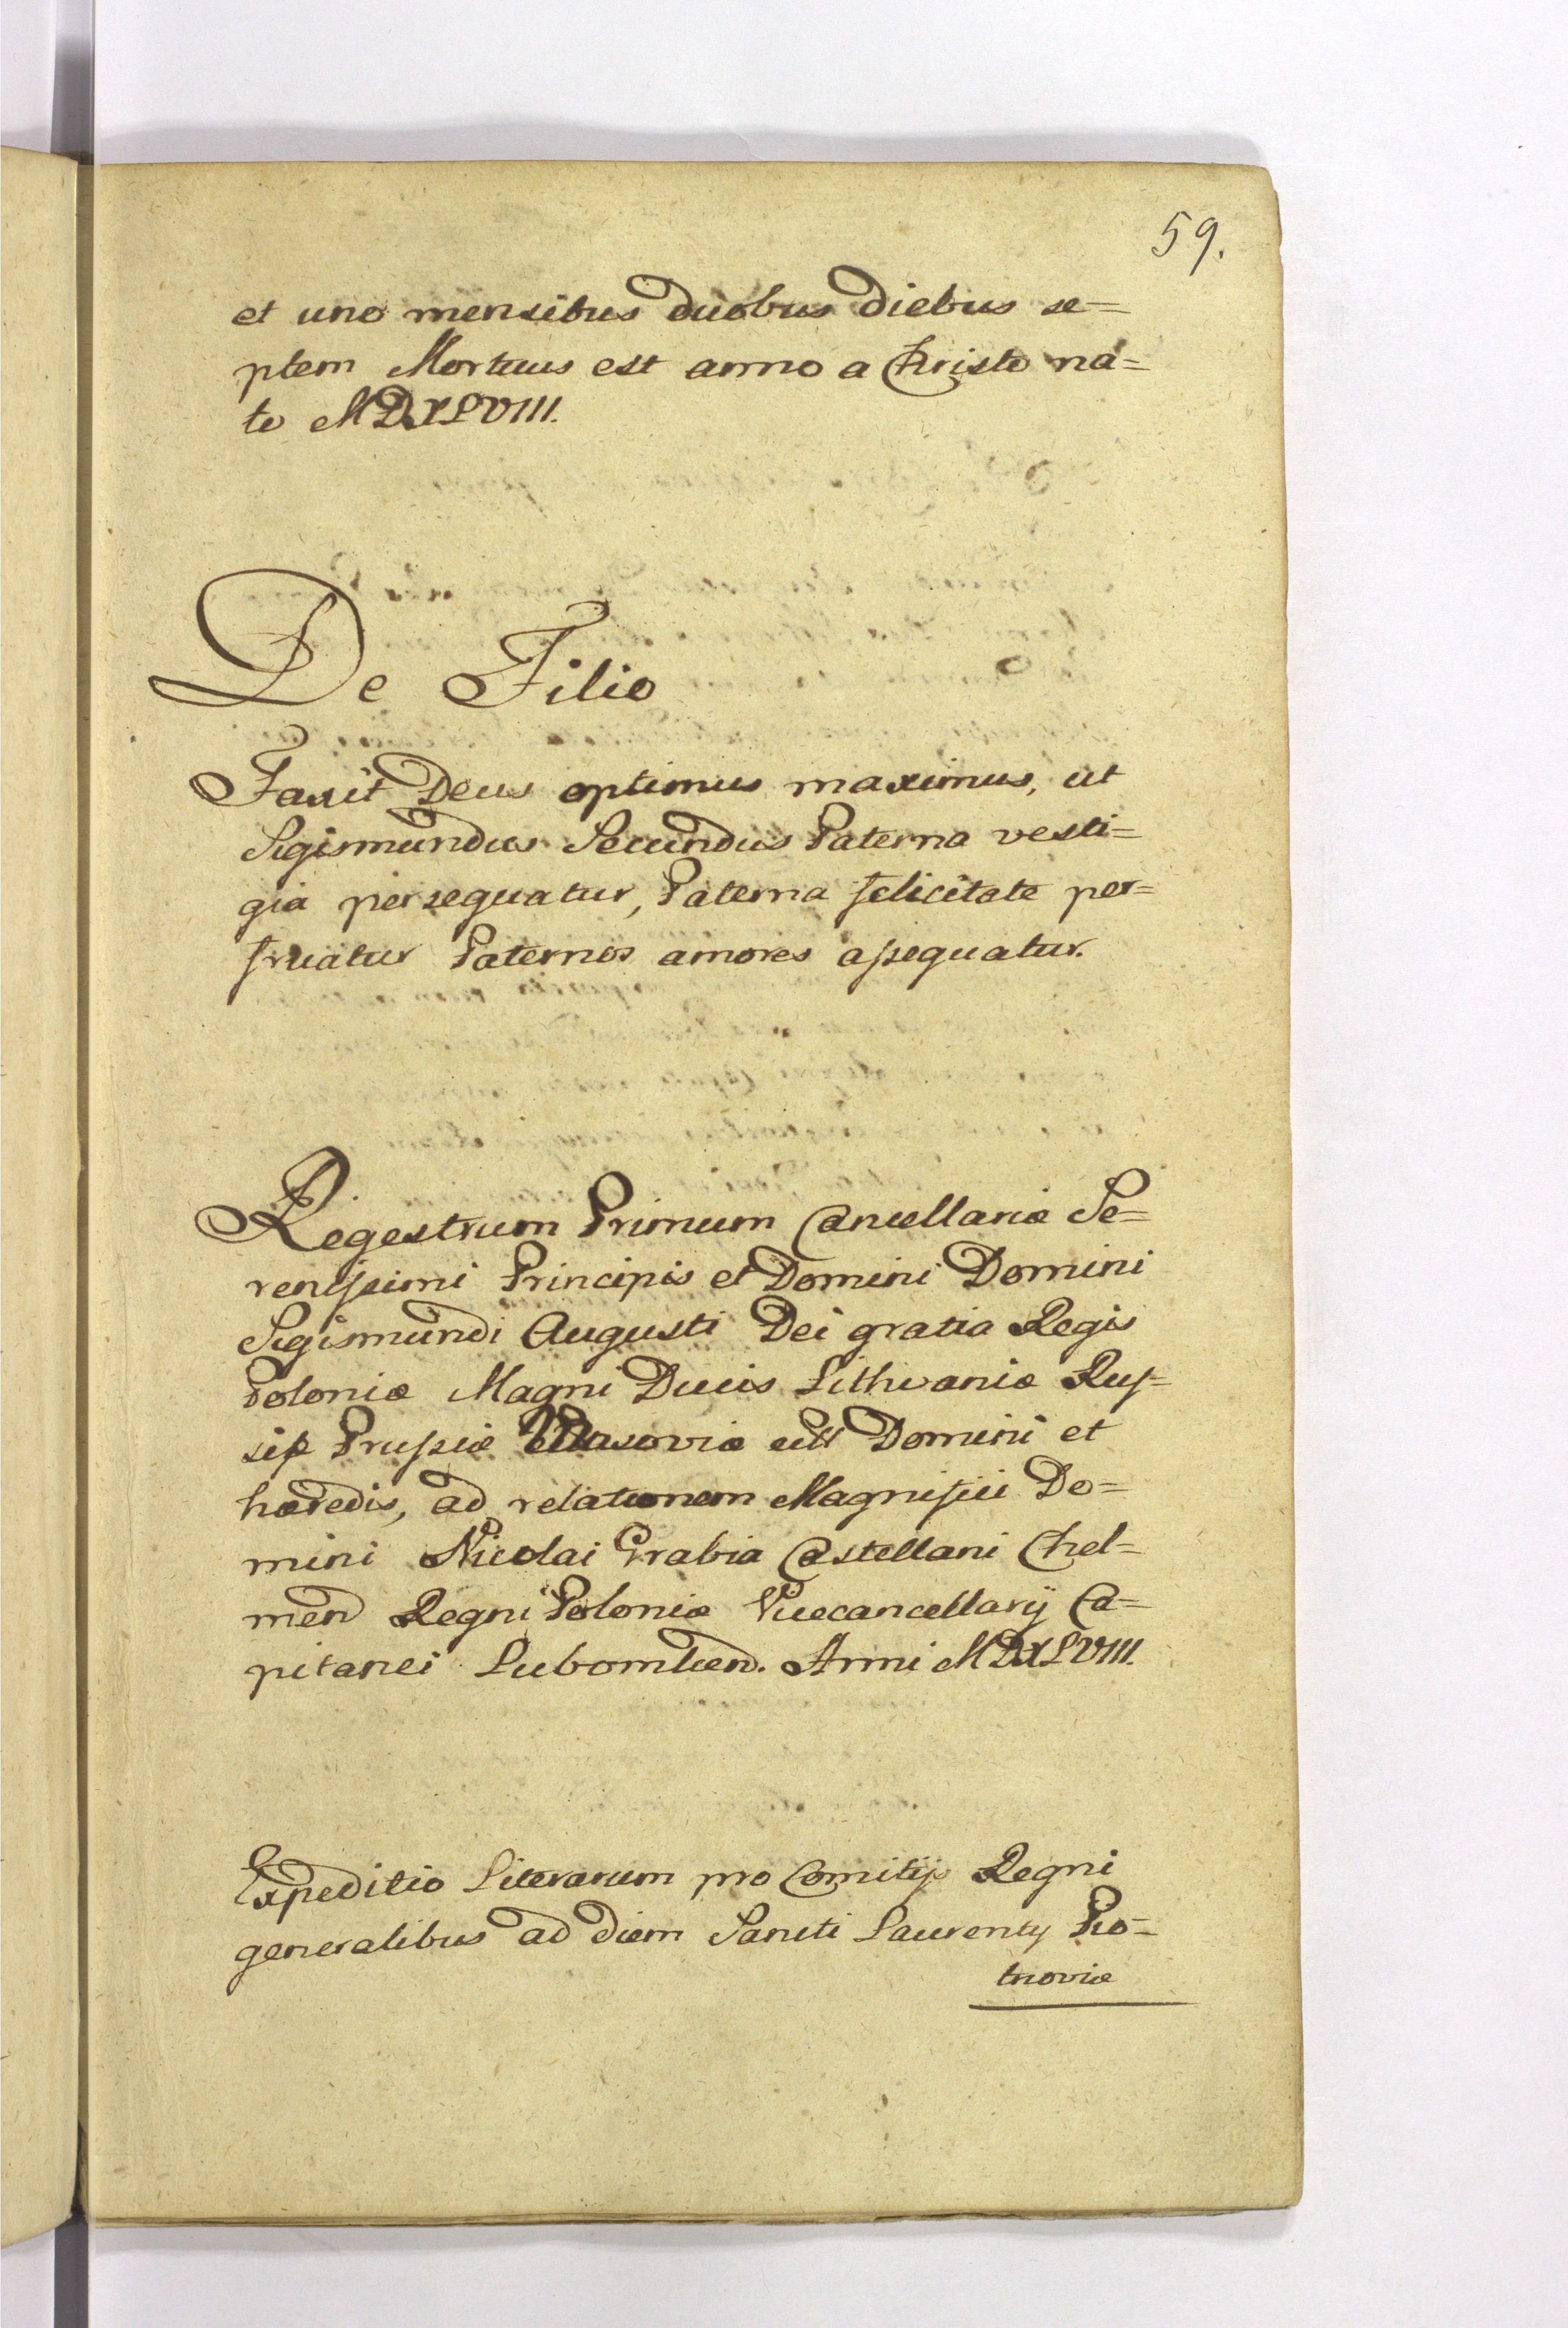 59.
et uno mensibus duobus diebus se=
ptem Mortuus est anno a Christo na=
to MDXLVIII.
De Filio
Faxit Deus optimus maximus, ut
Sigismundus Secundus Paterna vesti=
gia persequatur, Paterna felicitate per=
fruatur Paternos amores assequatur.
Regestrum Primum Cancellariæ Se=
renissimi Principis et Domini Domini
Sigismundi Augusti Dei gratia Regis
Poloniæ Magni Ducis Lithvaniæ Rus=
siæ Prussiæ Masoviæ Domini et
hæredis, ad relationem Magnifici Do=
mini Nicolai Grabia Castellani Chel=
men Regni Poloniæ Vicecancellarij Ca=
pitanei Lubomlien. Anni MDXLVIII.
Expeditio Literarum pro Comitijs Regni
generalibus ad diem Sancti Laurentij Pio=
trcoviæ